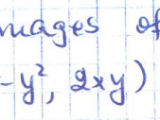 mages of
-y², 2xy)